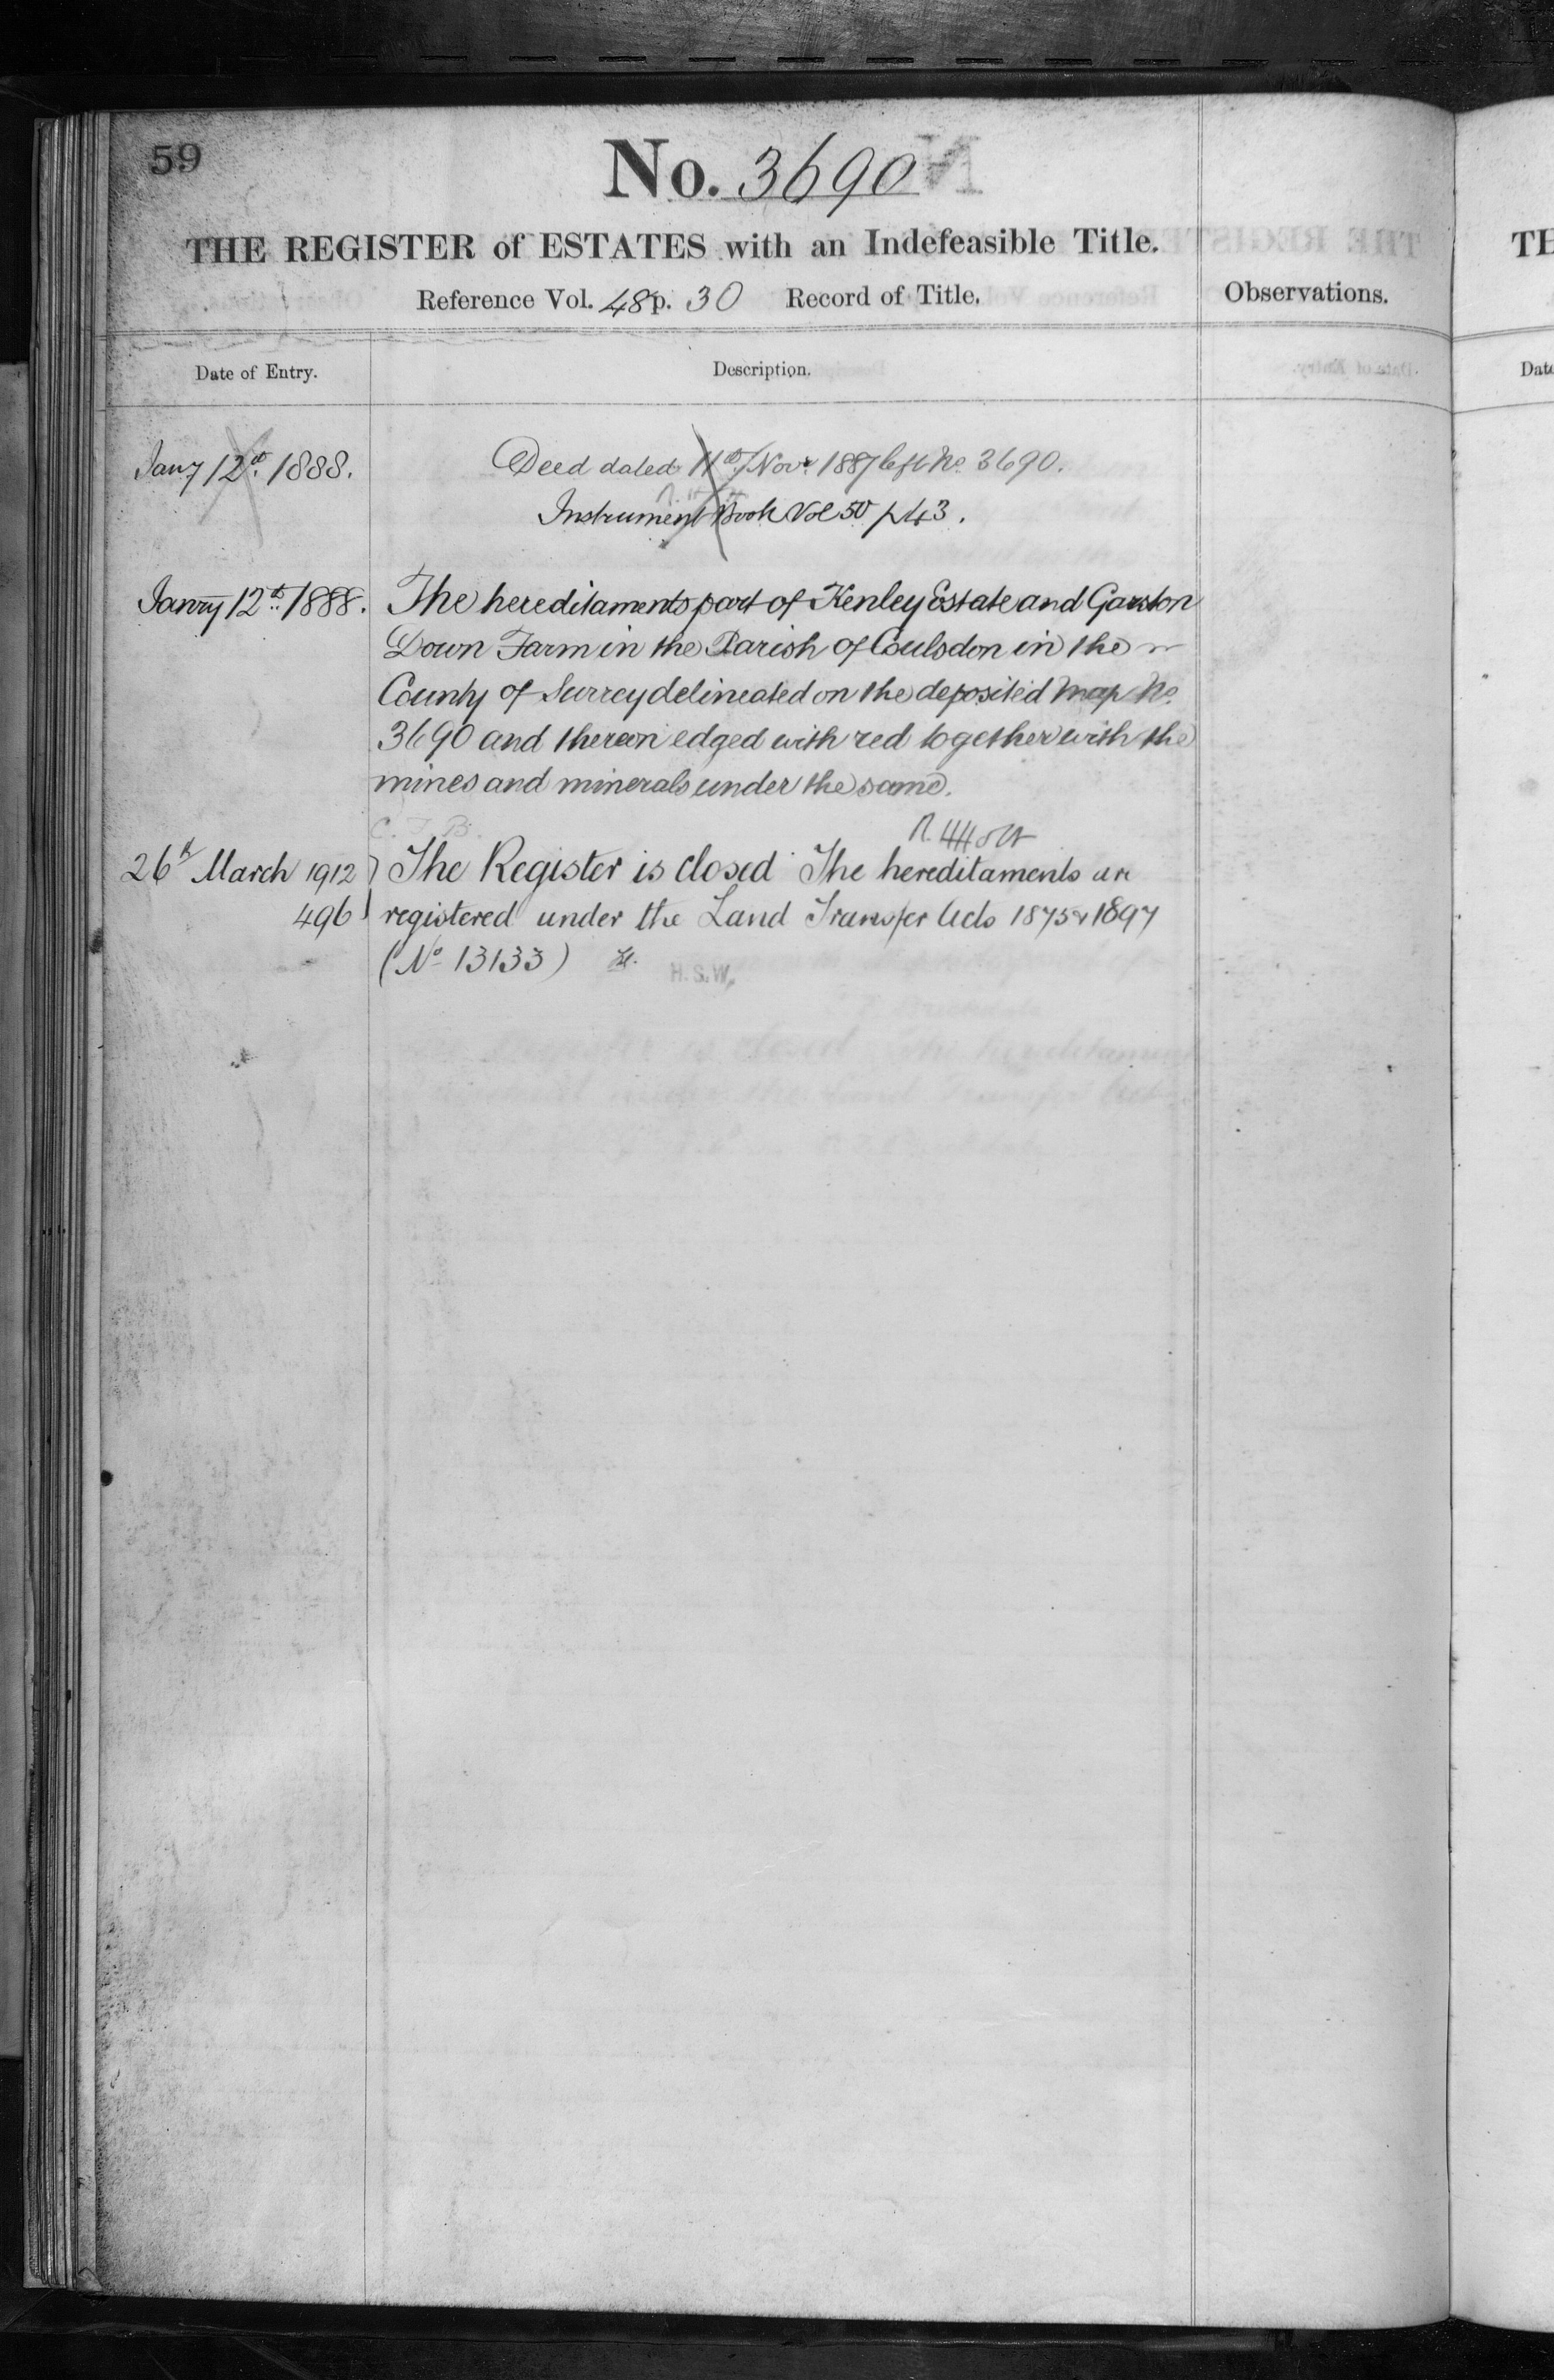 59
No. 3690
THE REGISTER of ESTATES with an Indefeasible Title.
Reference Vol. 48 p. 30 Record of Title.
Observations.
Date of Entry.
Description.
Jany 12th. 1888.
Deed dated 11th Novr 1887 left No. 3690.
Instrument Book Vol 50 p 43.
Janry 12th. 1888.
The hereditaments part of Kenley Estate and Garston
Down Farm in the Parish of Coulsdon in the
County of Surrey delineated on the deposited map No.
3690 and thereon edged with red together with the
mines and minerals under the same.
C. J. B.
R. H Holt
26th March 1912
496
The Register is closed The hereditaments are
registered under the Land Transfer Acts 1875 & 1897
(No 13133)
H.S.W.
TH
Date